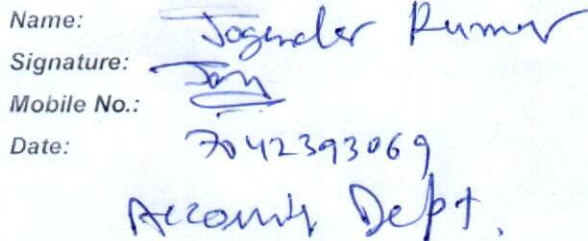 Name: Jogender Kumar
Signature:
Mobile No.:
Date: 7042393069
Accounts Dept.